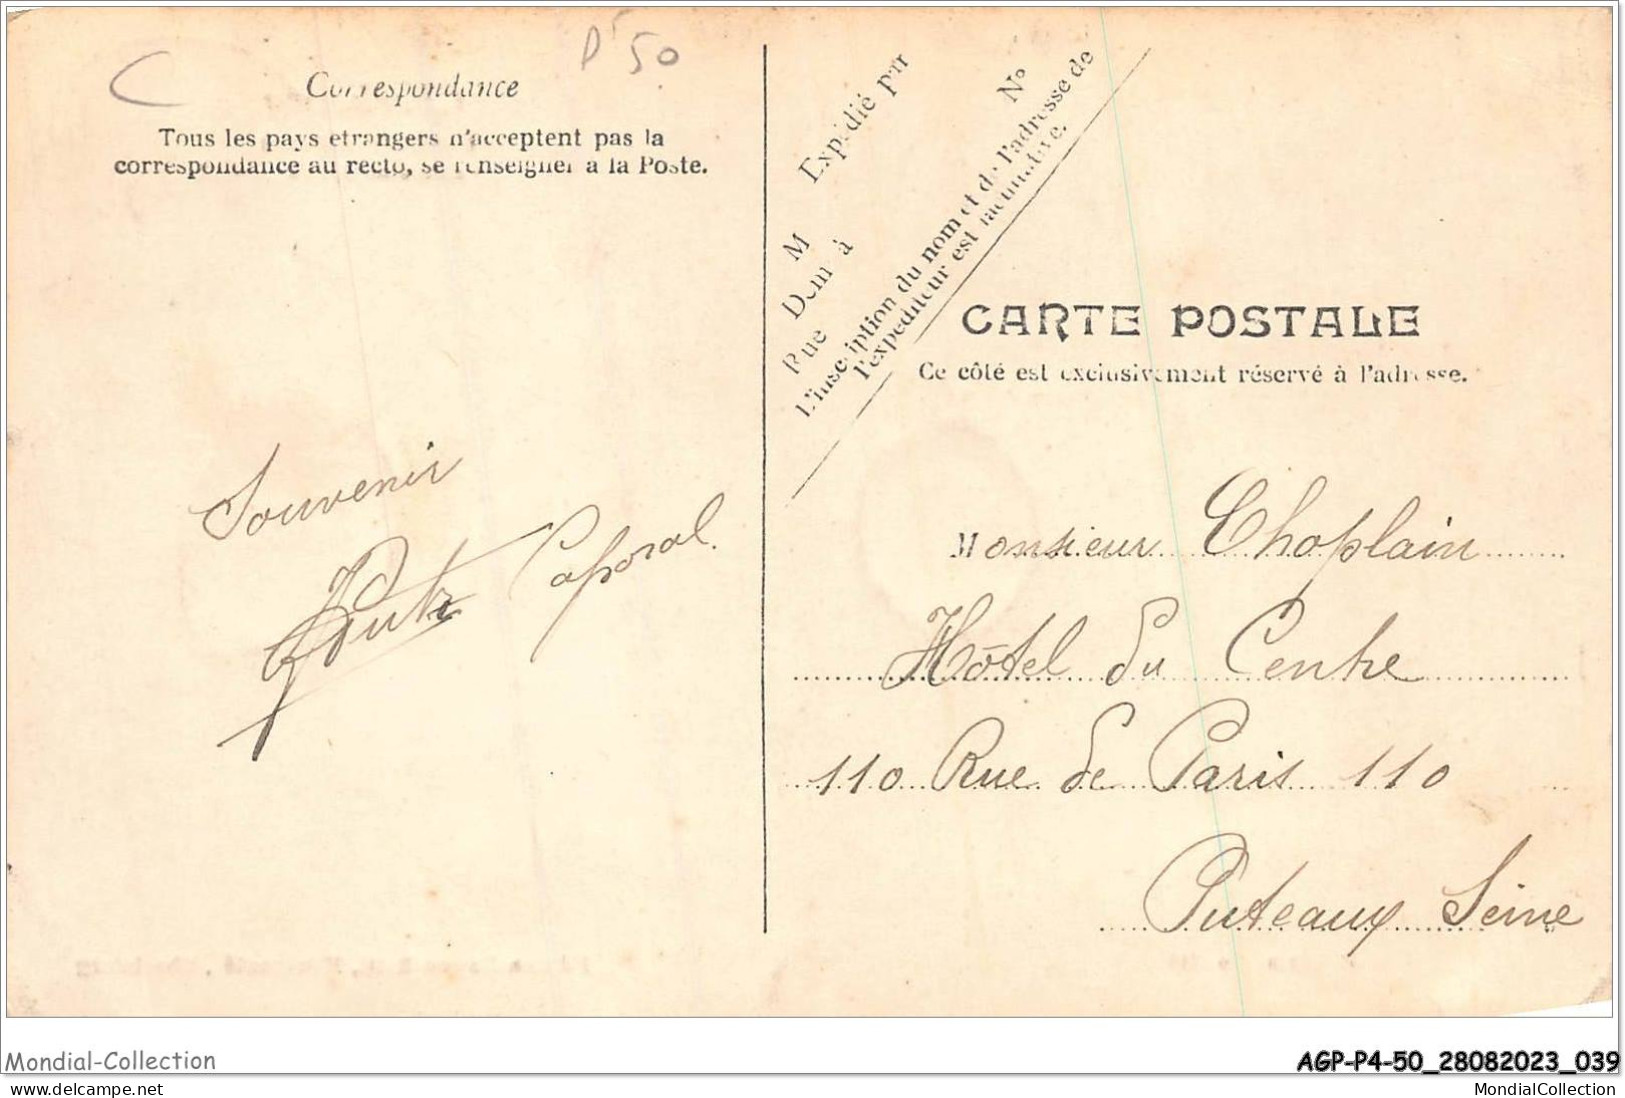 P 50
Correspondance
Tous les pays etrangers n'acceptent pas la
correspondance au recto, se renseigner a la Poste.
Souvenir
Caporal.
Expédié par
M
Dem à
Rue
N°
L'inscription du nom et de l'adresse de
l'expéditeur est facultative.
CARTE POSTALE
Ce côté est exclusivement réservé à l'adresse.
Monsieur Choplain
Hôtel du Centre
110 Rue de Paris 110
Puteaux Seine
Mondial-Collection
AGP-P4-50_28082023_039
www.delcampe.net
MondialCollection